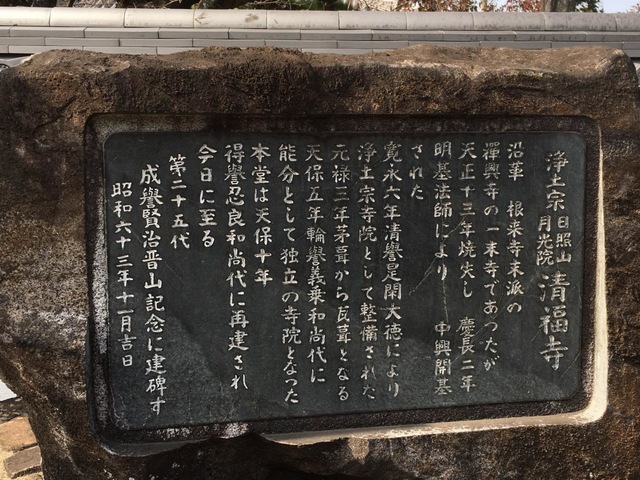 浄土宗 日照山 月光院 清福寺
沿革 根来寺末派の
禪興寺の一末寺であったが
天正十三年焼失し 慶長二年
明基法師により 中興開基
された
寛永六年清誉是閑大徳により
浄土宗寺院として整備された
元禄三年茅葺から瓦葺となる
天保五年輪誉義乗和尚代に
能分として独立の寺院となった
本堂は天保十年
得誉忍良和尚代に再建され
今日に至る
第二十五代
成誉賢治晋山記念に建碑す
昭和六十三年十一月吉日